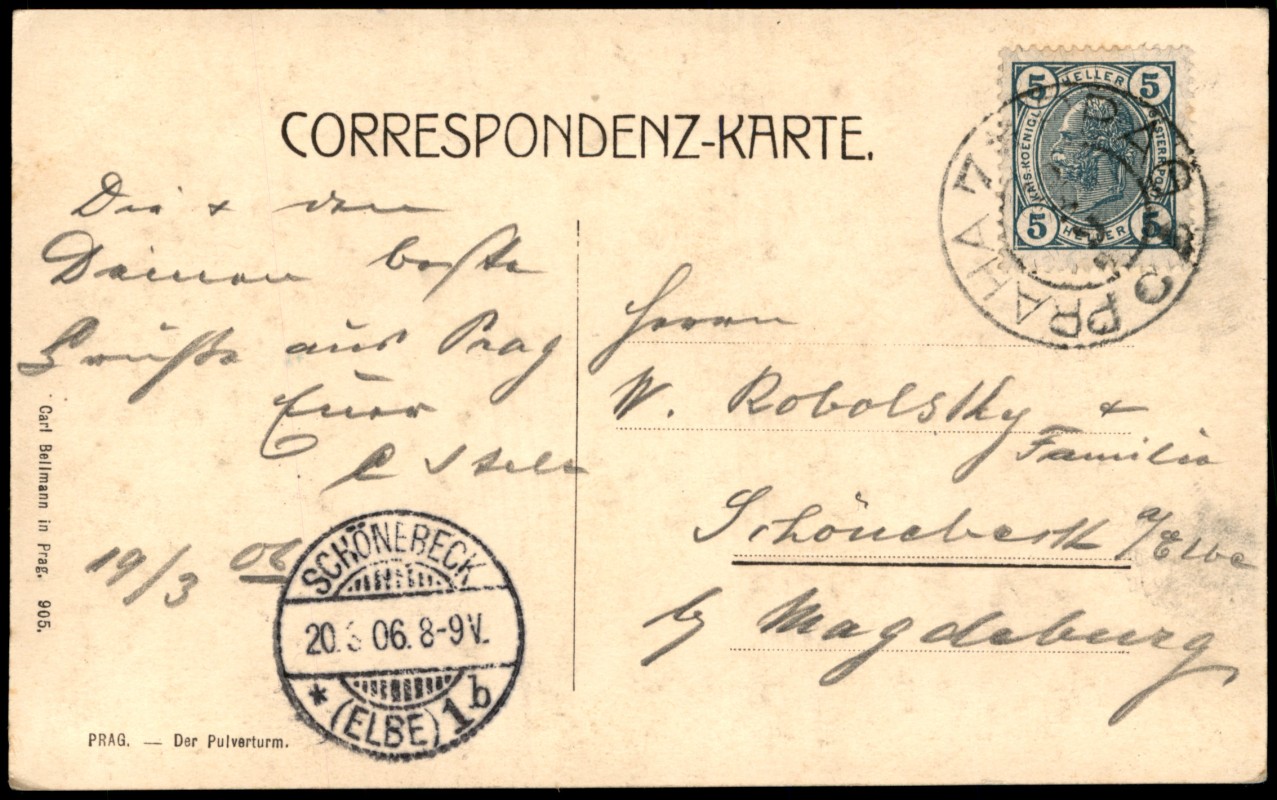 CORRESPONDENZ-KARTE.
5 HELLER 5
KAIS. KOENIGL. OESTERR. POST
5 HELLER 5
PRAHA 7
Dir & den
Deinen beste
Grüße aus Prag
Euer
19/3 06
Herrn
W. Robolsky &
Familie
Schönebeck a/Elbe
b/ Magdeburg
SCHÖNEBECK
20.3.06.8-9V.
* (ELBE) 1b
Carl Bellmann in Prag. 905.
PRAG. — Der Pulverturm.